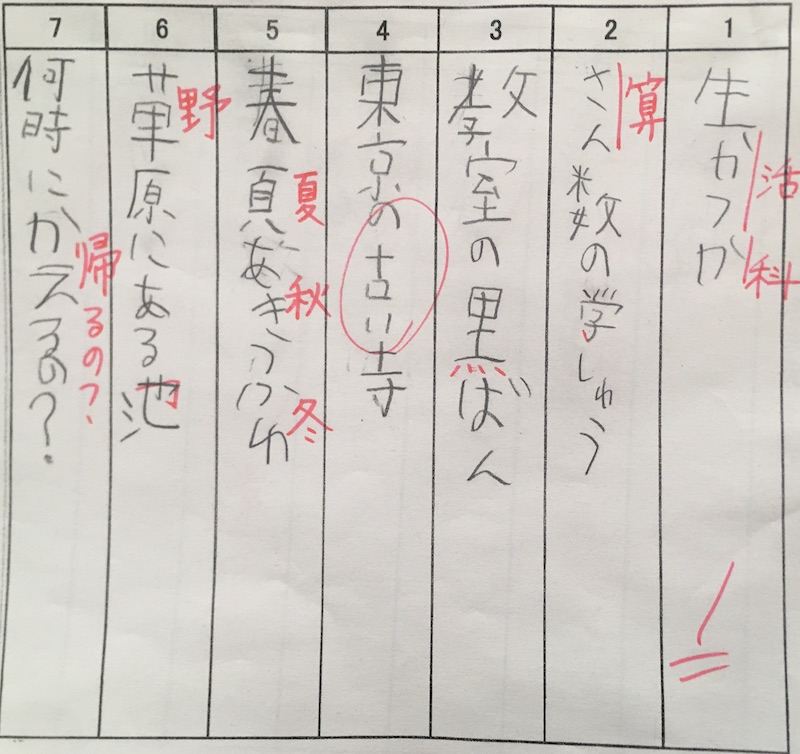 1
生かつか
活
科
2
さん数の学しゅう
算
3
教室の黒ばん
4
東京の古い寺
5
春夏あきふゆ
夏
秋
冬
6
草原にある池
野
7
何時にかえるの?
帰るの?
1